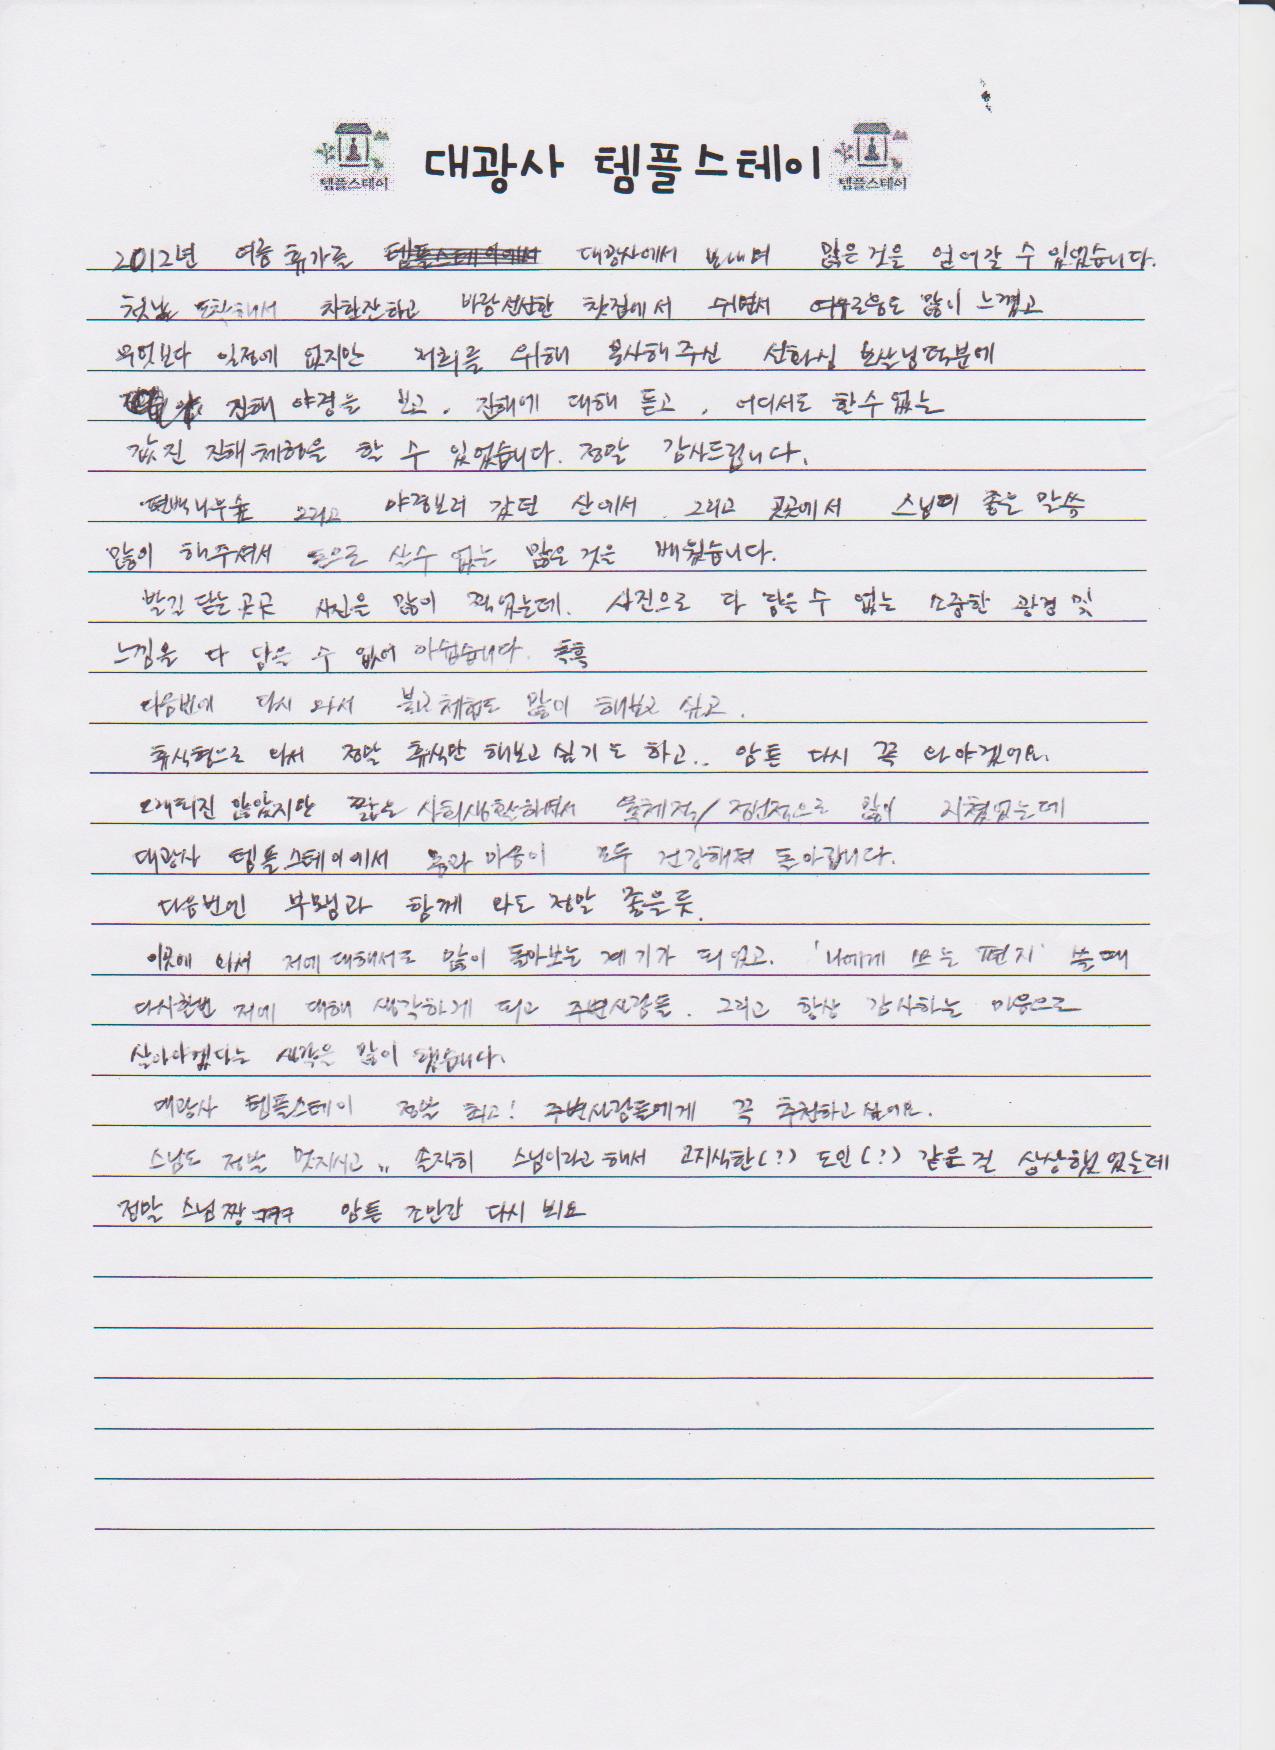 템플스테이 대광사 템플스테이 템플스테이
2012년 여름 휴가를 템플스테이에서 대광사에서 보내며 많은것을 얻어갈 수 있었습니다.
첫날 도착해서 차한잔하고 바람선선한 찻집에서 쉬면서 여유로움도 많이 느꼈고
무엇보다 일정에 없지만 저희를 위해 봉사해주신 선화심 보살님덕분에
진해 야경을 보고, 진해에 대해 듣고, 어디서도 할수없는
값진 진해체험을 할 수 있었습니다. 정말 감사드립니다.
편백나무숲 그리고 야경보러 갔던 산에서 그리고 곳곳에서 스님이 좋은 말씀
많이 해주셔서 돈으로 살수 없는 많은 것을 배웠습니다.
발길 닿는곳곳 사진은 많이 찍었는데. 사진으로 다 담을 수 없는 소중한 광경 및
느낌을 다 담을 수 없어 아쉽습니다. 흑흑
다음번에 다시 와서 불교체험도 많이 해보고 싶고.
휴식형으로 와서 정말 휴식만 해보고싶기도 하고.. 암튼 다시 꼭 와야겠어요.
오래되진 않았지만 짧은 사회생활하면서 육체적/정신적으로 많이 지쳤었는데
대광사 템플스테이에서 몸과 마음이 모두 건강해져 돌아갑니다.
다음번엔 부모님과 함께 와도 정말 좋을듯.
이곳에 와서 저에대해서도 많이 돌아보는 계기가 되었고. '나에게 쓰는 편지' 쓸때
다시한번 저에 대해 생각하게 되고 주변사람들. 그리고 항상 감사하는 마음으로
살아야겠다는 생각을 많이 했습니다.
대광사 템플스테이 정말 최고! 주변사람들에게 꼭 추천하고싶어요.
스님도 정말 멋지시고.. 솔직히 스님이라고해서 고지식한(?) 도인(?) 같은걸 상상했었는데
정말 스님짱 ㅋㅋㅋ 암튼 조만간 다시 뵈요